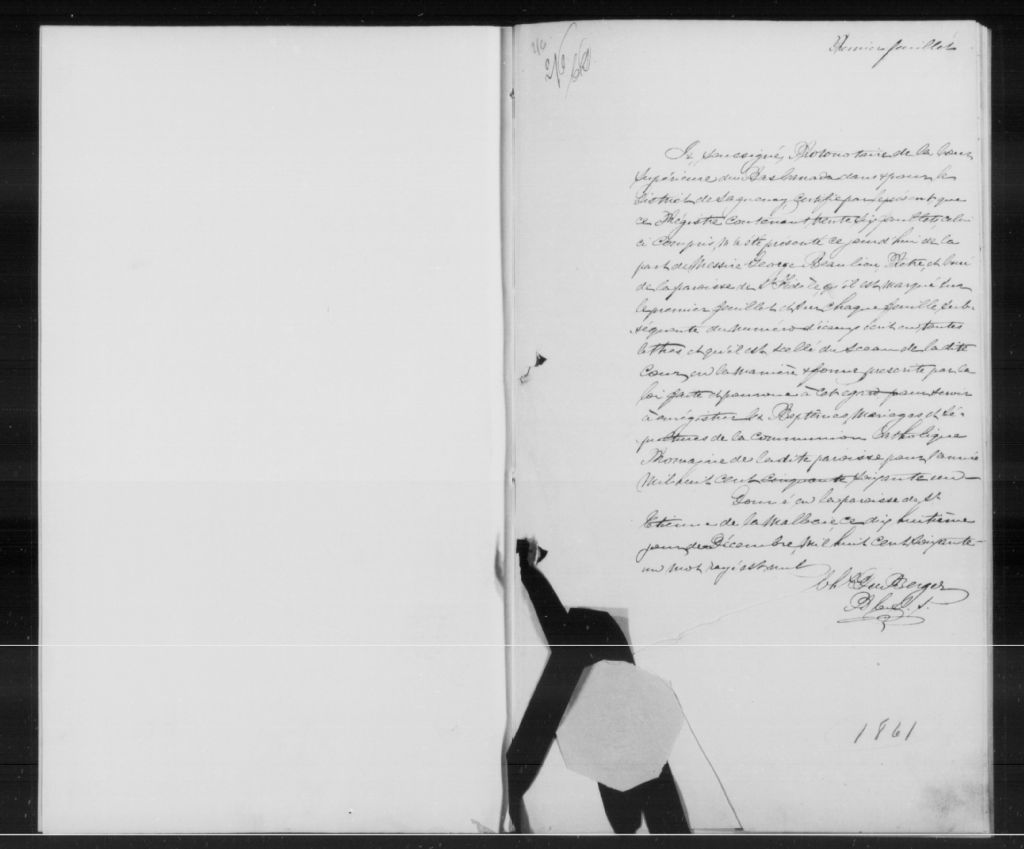 216
216/68
Premier feuillet
Je, soussigné, Protonotaire de la Cour
Supérieure du Bas Canada dans & pour le
District de Saguenay, certifie par le présent que
ce Régistre contenant trente six feuillets, celui
ci compris, m'a été présenté ce jourd'hui de la
part de Messire George Beaulieu, Prêtre, et Curé
de la paroisse de St. Fidèle qu'il est marqué sur
le premier feuillet et sur chaque feuille sub-
séquente du numéro d'iceux écrit en toutes
lettres et qu'il est scellé du sceau de la dite
Cour, en la manière & forme prescrite par la
loi faite et pourvue à cet égard pour servir
à enrégistrer les Baptêmes, Mariages et Sé-
pultures de la Communion Catholique
Romaine de la dite paroisse pour l'année
mil huit cent cinquante soixante un —
Donné en la paroisse de St.
Etienne de la Malbaie, ce dix huitième
jour de Décembre, mil huit cent soixante
un mot rayé est nul
Chs. Du Berger
P. C. S. S.
1861